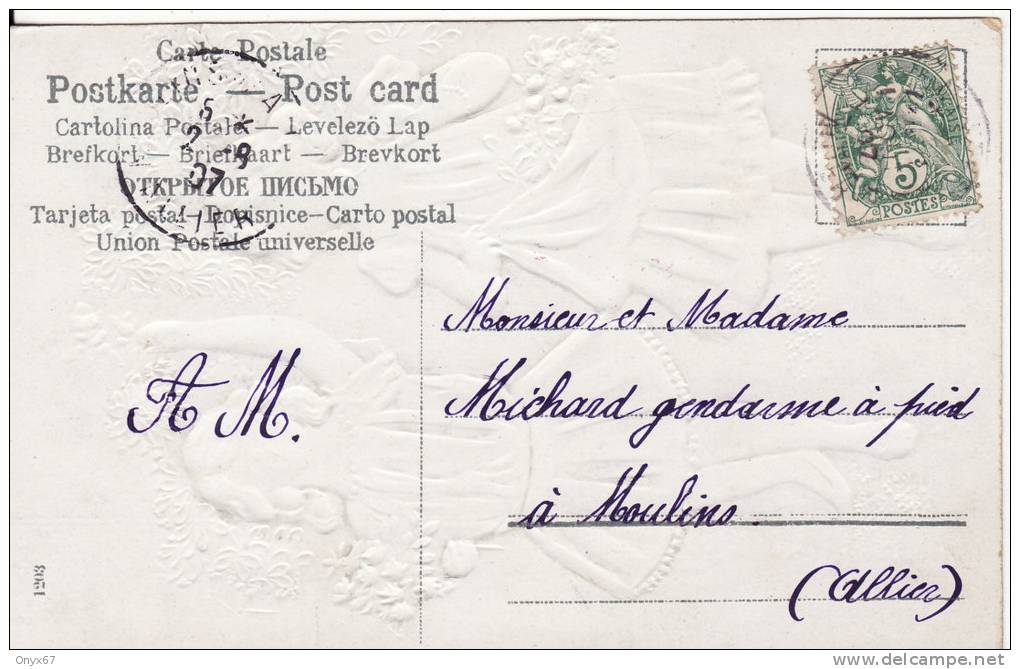 Carte Postale
Postkarte — Post card
Cartolina Postale — Levelező Lap
Brefkort — Briefkaart — Brevkort
ОТКРЫТОЕ ПИСЬМО
Tarjeta postal — Dopisnice — Carto postal
Union Postale universelle
07
5c
POSTES
Monsieur et Madame
Michard gendarme à pied
à Moulins.
(Allier)
A M.
1203
Onyx67
www.delcampe.net